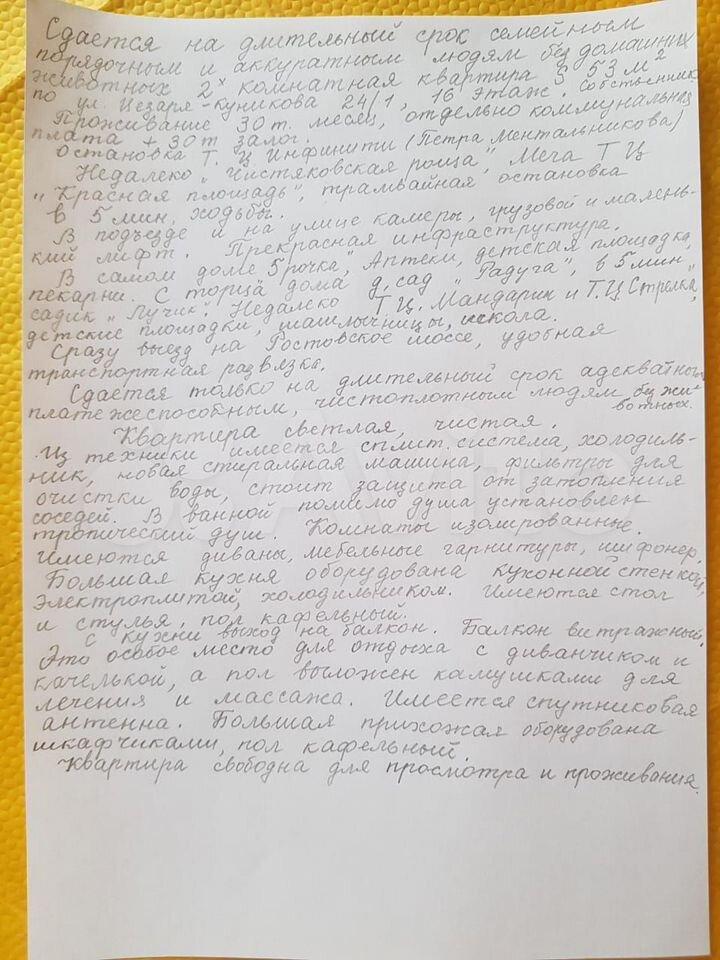 Сдается на длительный срок семейным
порядочным и аккуратным людям без домашних
животных 2х комнатная квартира S 53 м2
по ул. Цезаря-Куникова 24/1, 16 этаж. Собственник.
Проживание 30 т. месяц, отдельно коммунальная
плата + 30 т залог.
Остановка Т. Ц Инфинити (Петра Ментальникова)
Недалеко "Чистяковская роща", Меча Т Ц
"Красная площадь", трамвайная остановка
в 5 мин, ходьбы.
В подъезде и на улице камеры, грузовой и малень-
кий лифт. Прекрасная инфраструктура.
В самом доме 5рочка", Аптеки, детская площадка,
пекарни. С торца дома д, сад "Радуга", в 5 мин
садик "Лучик". Недалеко Т Ц, Мандарин и Т.Ц Стрелка,
детские площадки, шашлычницы, школа.
Сразу выезд на Ростовское шоссе, удобная
транспортная развязка.
Сдается только на длительный срок адекватным
платежеспособным, чистоплотным людям без жи-
вотных.
Квартира светлая, чистая.
Из техники имеется сплит.система, холодиль-
ник, новая стиральная машина, фильтры для
очистки воды, стоит защита от затопления
соседей. В ванной помимо душа установлен
тропический душ. Комнаты изолированные.
Имеются диваны, мебельные гарнитуры, шифонер.
Большая кухня оборудована кухонной стенкой,
электроплитой, холодильником. Имеются стол
и стулья, пол кафельный.
С кухни выход на балкон. Балкон витражный.
Это особое место для отдыха с диванчиком и
качелькой, а пол выложен камушками для
лечения и массажа. Имеется спутниковая
антенна. Большая прихожая оборудована
шкафчиками, пол кафельный.
Квартира свободна для просмотра и проживания.